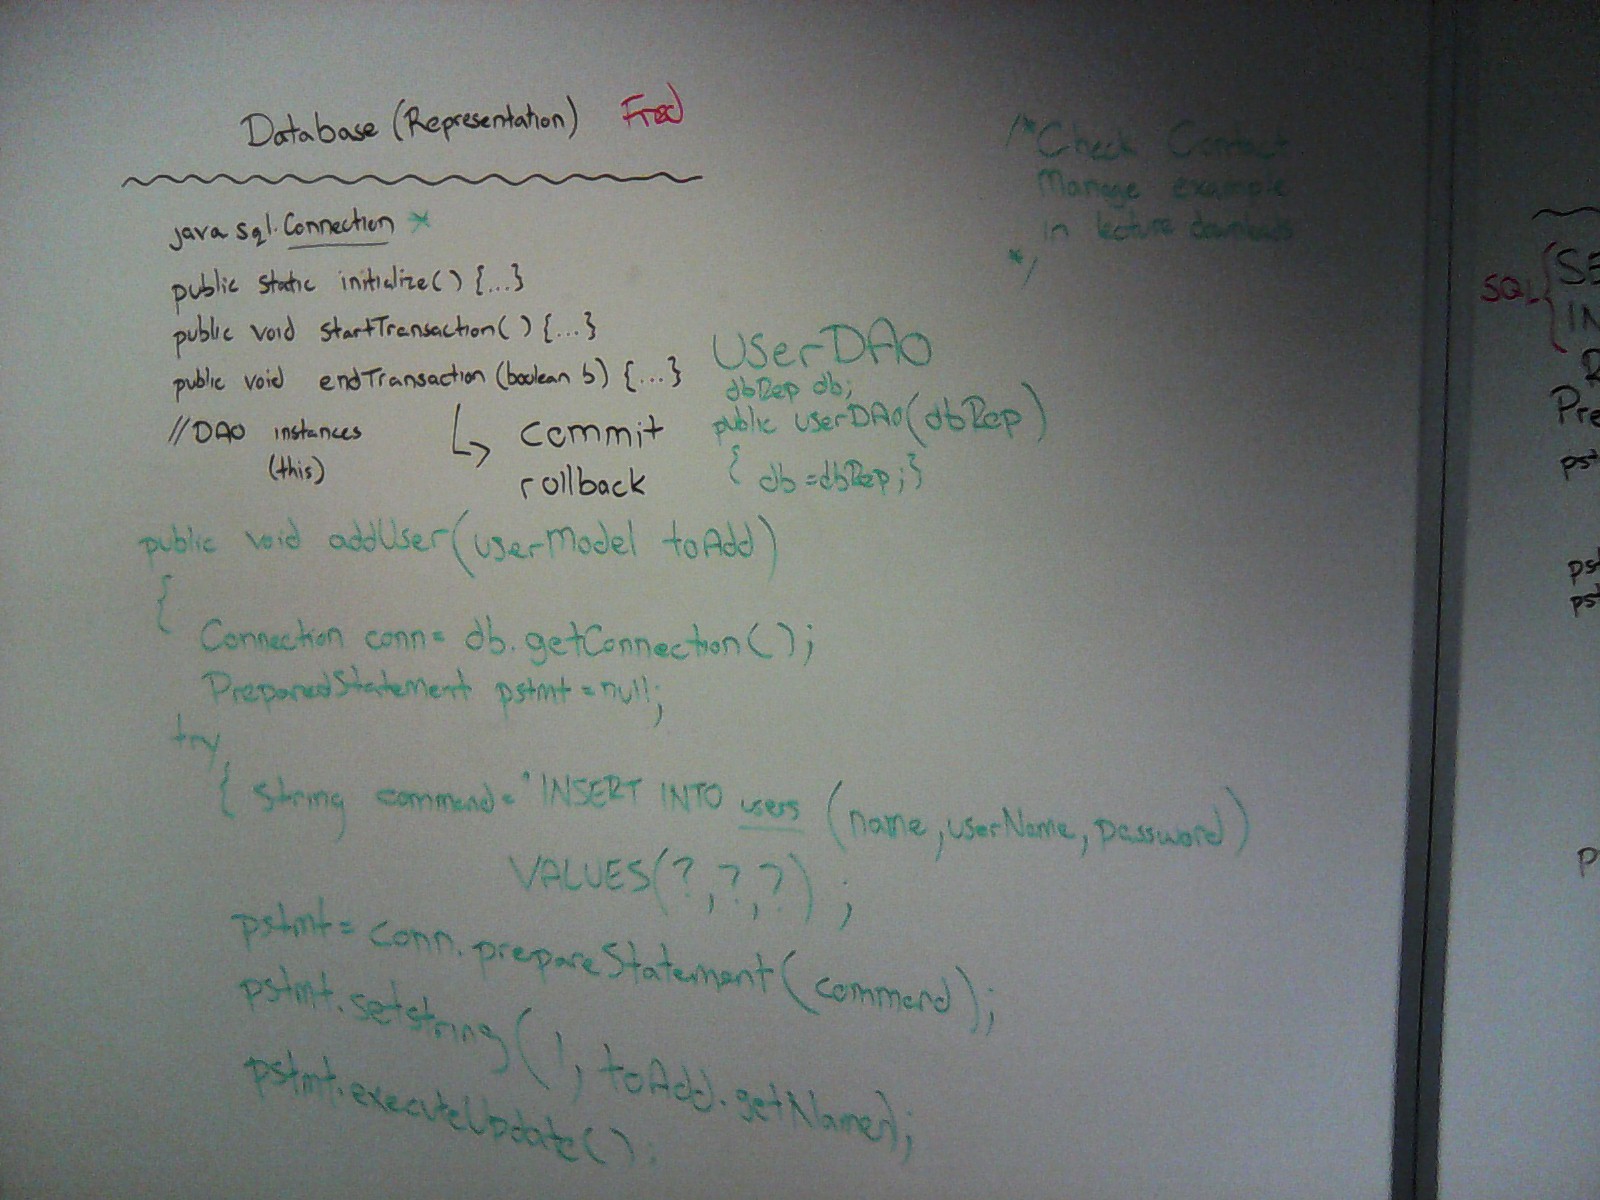 Database (Representation) Fred
java sql.Connection *
public static initialize() {...}
public void startTransaction() {...}
public void endTransaction (boolean b) {...}
//DAO instances
(this)
commit
rollback
/*Check Contact
Manage example
in lecture downloads
*/
UserDAO
dbRep db;
public userDAO(dbRep)
{ db=dbRep;}
public void addUser(userModel toAdd)
{
Connection conn= db.getConnection();
PreparedStatement pstmt=null;
try
{ String command="INSERT INTO users (name,userName,password)
VALUES(?,?,?);
pstmt= conn.prepareStatement(command);
pstmt.setstring(1, toAdd.getName);
pstmt.executeUpdate();
SQL{ SE
IN
R
Pre
pst
pst
pst
p